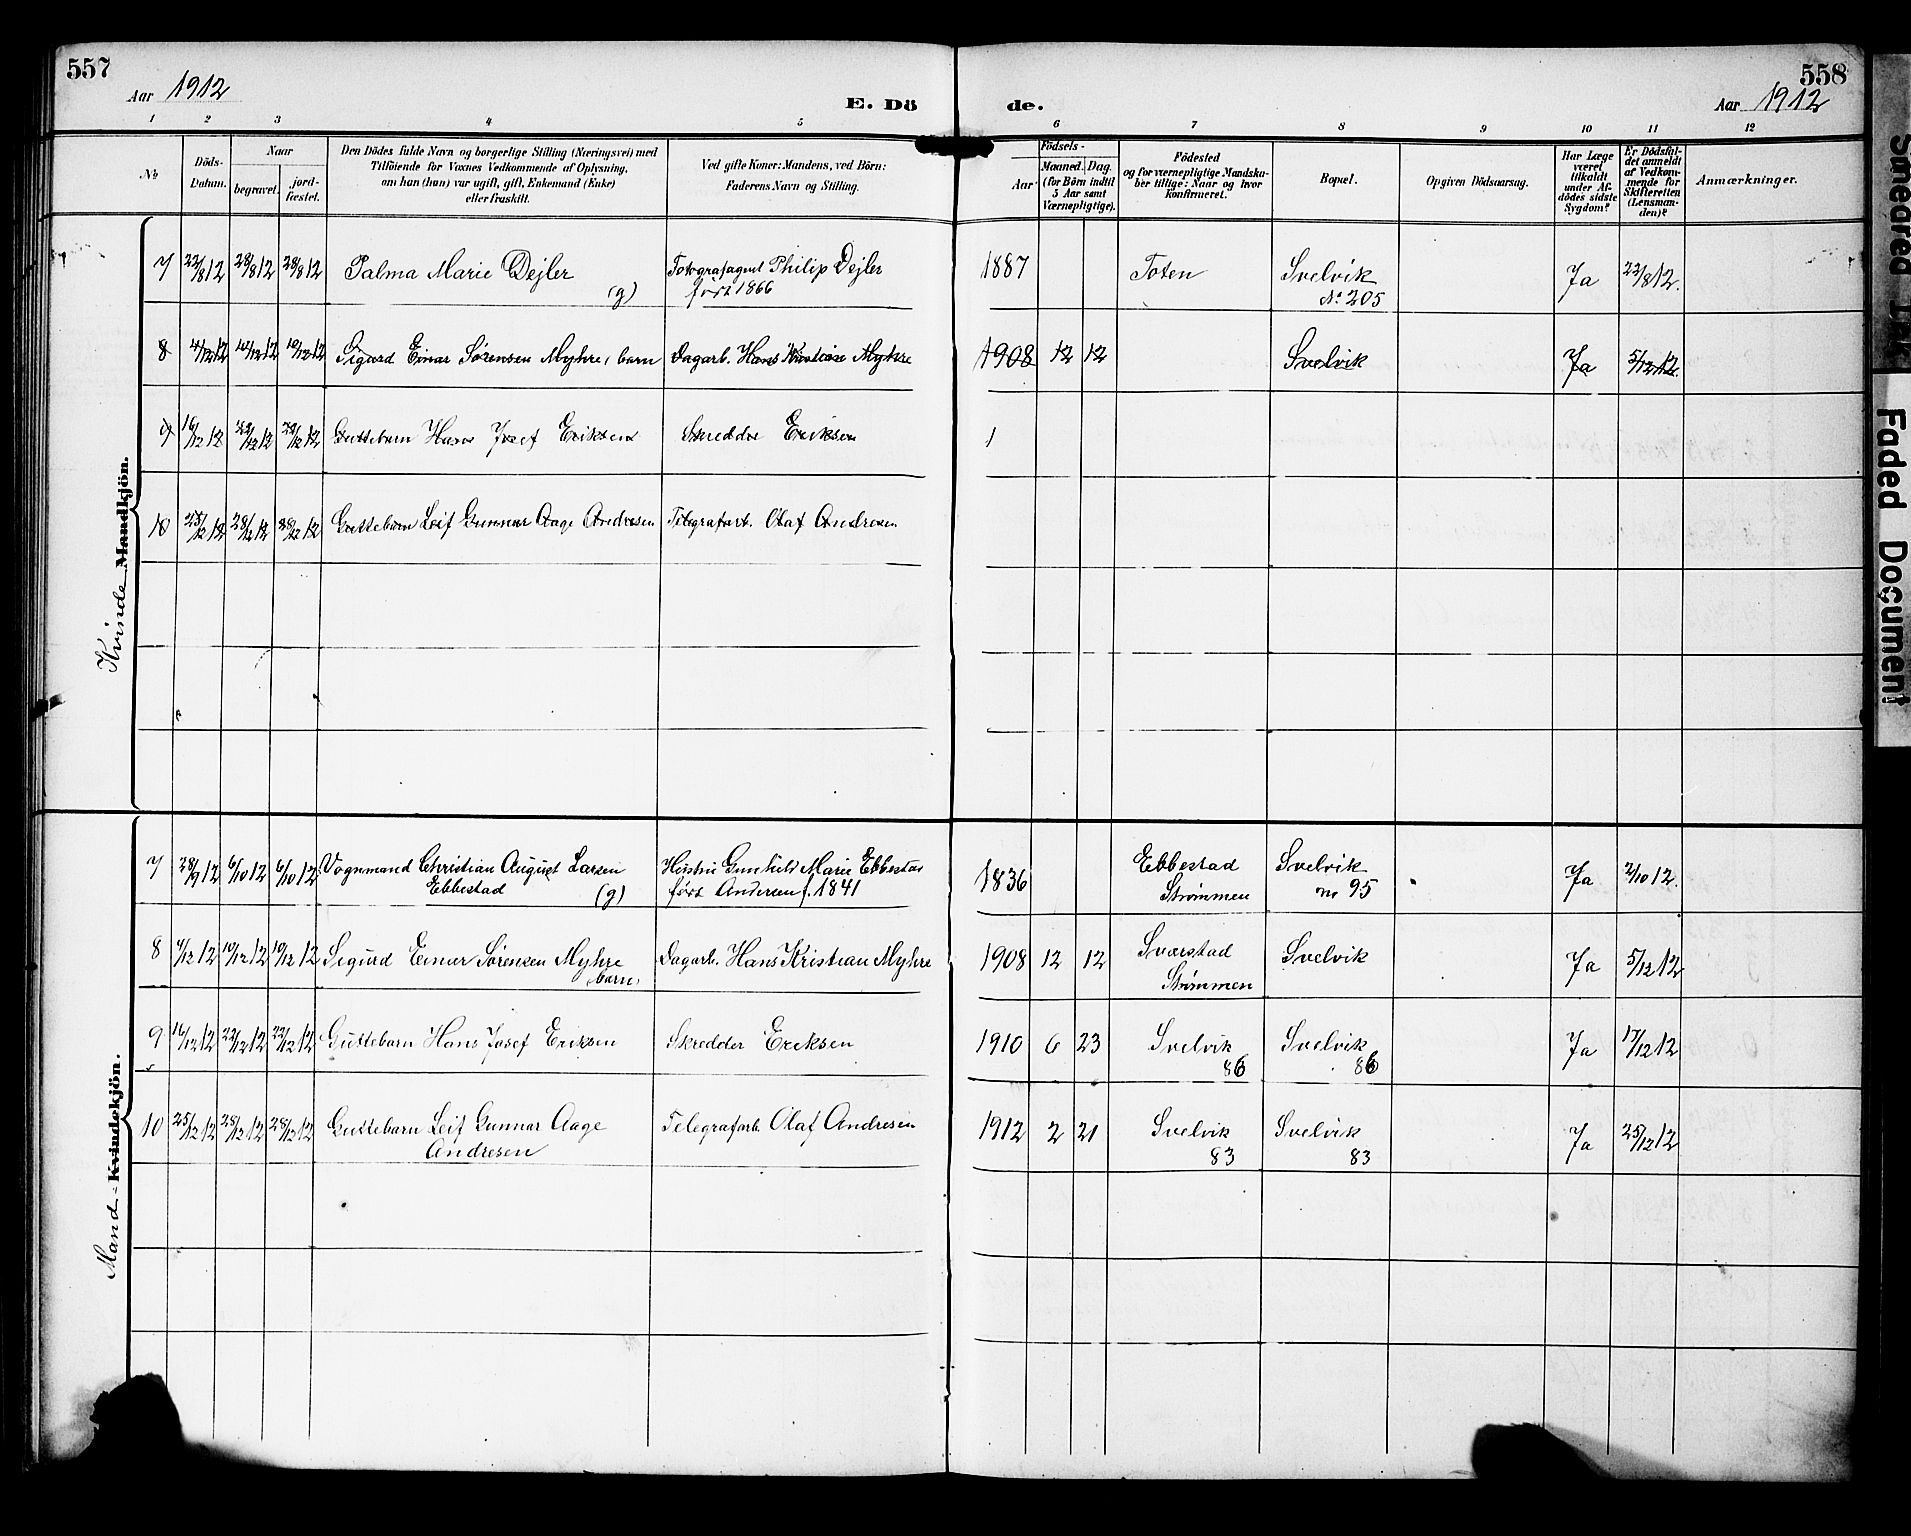 557
Aar 1912
E. Dö
de.
558
Aar 1912
1 2 3 4 5 6 7 8 9 10 11 12
No
Döds-
Datum.
Naar
begravet.
jord-
fæstet.
Den Dödes fulde Navn og borgerlige Stilling (Næringsvei) med
Tilföiende for Voxnes Vedkommende af Oplysning,
om hun (han) var ugift, gift, Enkemand (Enke)
eller fraskilt.
Ved gifte Koner: Mandens, ved Börn:
Faderens Navn og Stilling.
Födsels-
Aar.
Maaned. Dag.
(for Börn indtil
5 Aar samt
Værnepligtige).
Födested
og for værnepligtige Mandska-
ber tillige: Naar og hvor
konfirmeret.
Bopæl.
Opgiven Dödsaarsag.
Har Læge
været
tilkaldt
under Af-
dödes sidste
Sygdom?
Er Dödsfal-
det anmeldt
af Vedkom-
mende for
Skifteretten
(Lensman-
den)?
Anmærkninger.
Kvinde Mandkjön.
7 22/8 12 28/8 12 28/8 12 Palma Marie Dejler Fotografagent Philip Dejler 1887 Toten Svelvik Ja 22/8 12.
(g) født 1866 No 205
8 4/12 12 10/12 12 10/12 12 Sigurd Einar Sørensen Myhre, barn Dagarb. Hans Kristian Myhre 1908 12 12 Svelvik Ja 5/12 12.
9 16/12 12 22/12 12 22/12 12 Guttebarn Hans Josef Eriksen Skredder Eriksen 1
10 25/12 12 28/12 12 28/12 12 Guttebarn Leif Gunnar Aage Andresen Telegrafarb. Olaf Andresen
Mand- Kvindekjön.
7 28/9 12 6/10 12 6/10 12 Vognmand Christian August Larsen Hustru Gunhild Marie Ebbestad 1836 Ebbestad Svelvik Ja 2/10 12.
Ebbestad (g) født Andersen f. 1841 Strømmen no 95
8 4/12 12 10/12 12 10/12 12 Sigurd Einar Sørensen Myhre Dagarb. Hans Kristian Myhre 1908 12 12 Sværstad Svelvik Ja 5/12 12
barn, Strømmen
9 16/12 12 22/12 12 22/12 12 Guttebarn Hans Josef Eriksen Skredder Eriksen 1910 6 23 Svelvik Svelvik Ja 17/12 12
86 86
10 25/12 12 28/12 12 28/12 12 Guttebarn Leif Gunnar Aage Telegrafarb. Olaf Andresen 1912 2 21 Svelvik Svelvik Ja 25/12 12
Andresen 83 83
Smeared Ink
Faded Document